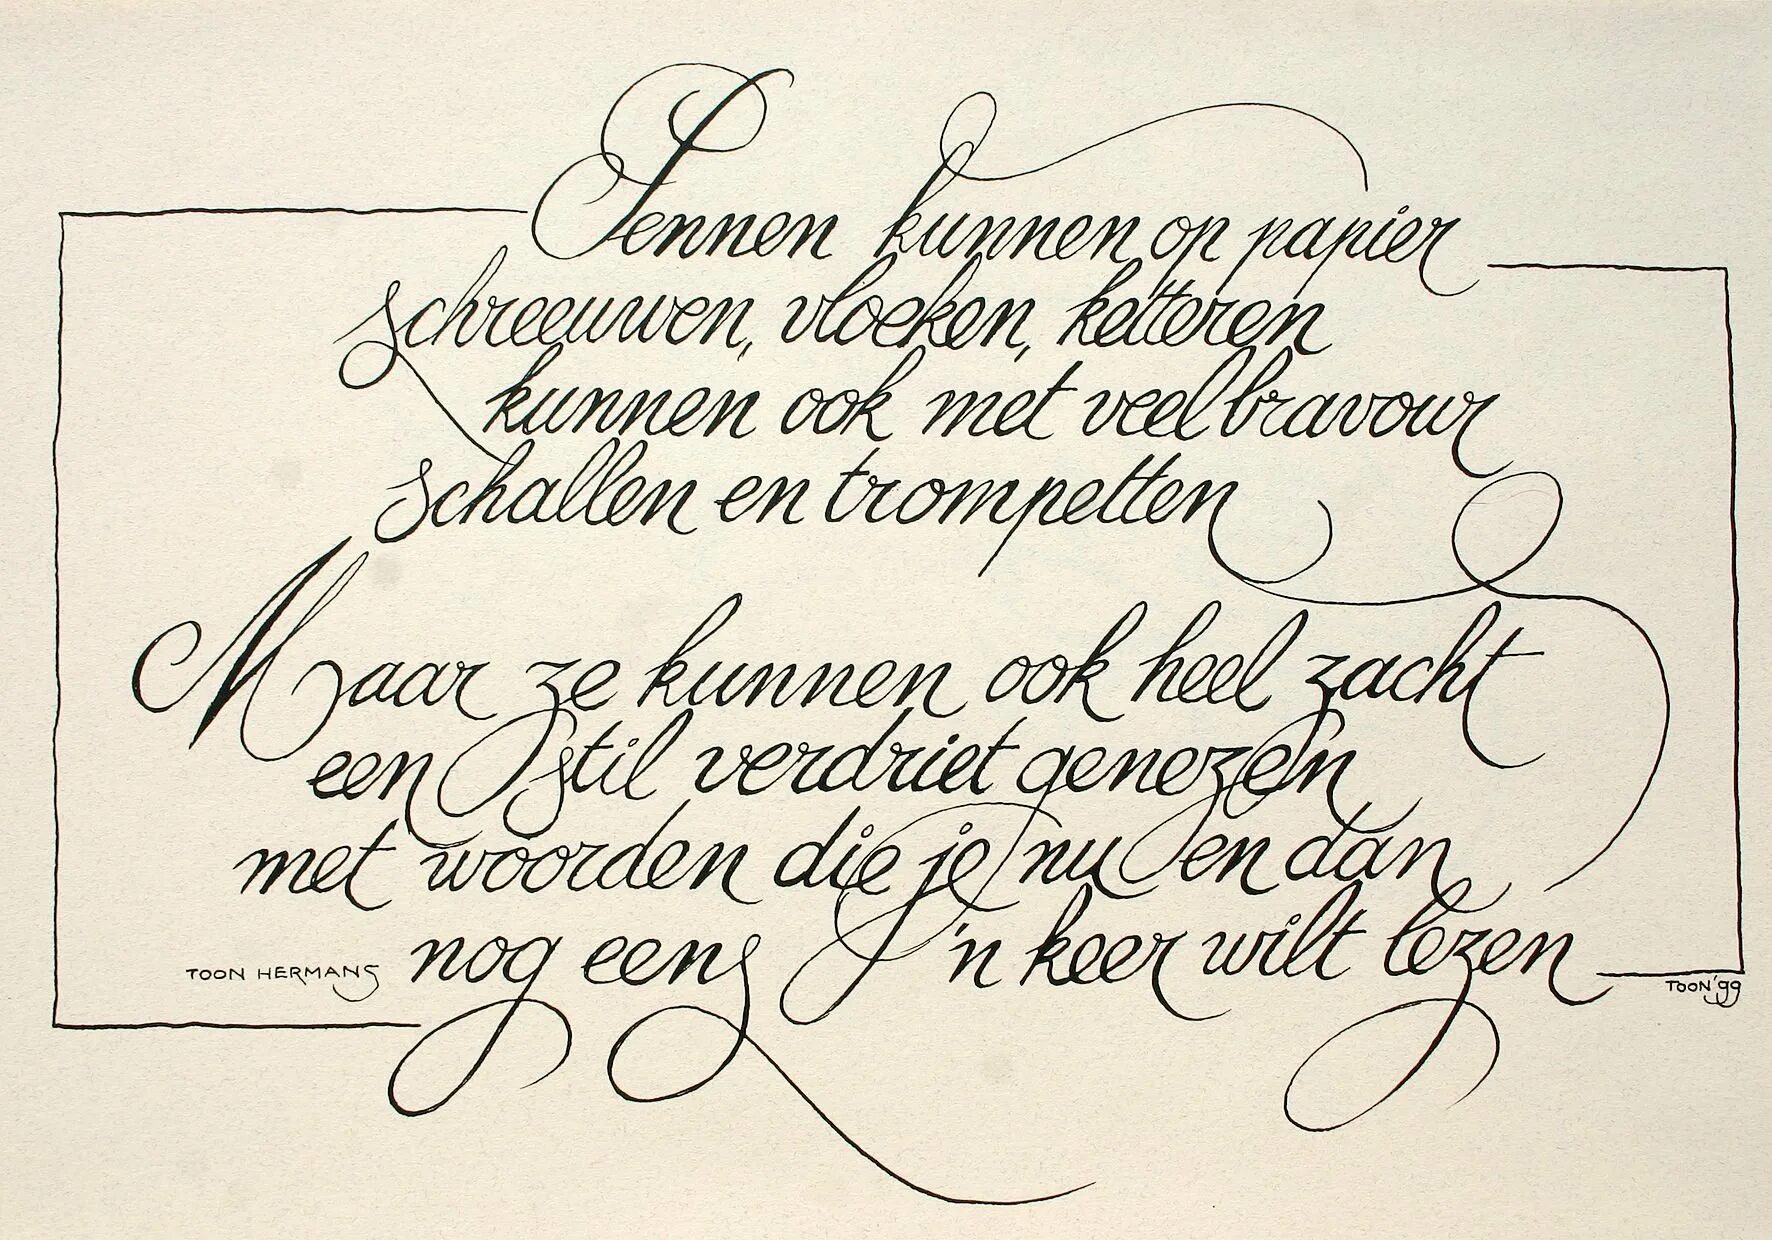 Pennen kunnen op papier
schreeuwen, vloeken, ketteren
kunnen ook met veel bravour
schallen en trompetten
Maar ze kunnen ook heel zacht
een stil verdriet genezen
met woorden die je nu en dan
nog eens 'n keer wilt lezen
TOON HERMANS
TOON '99